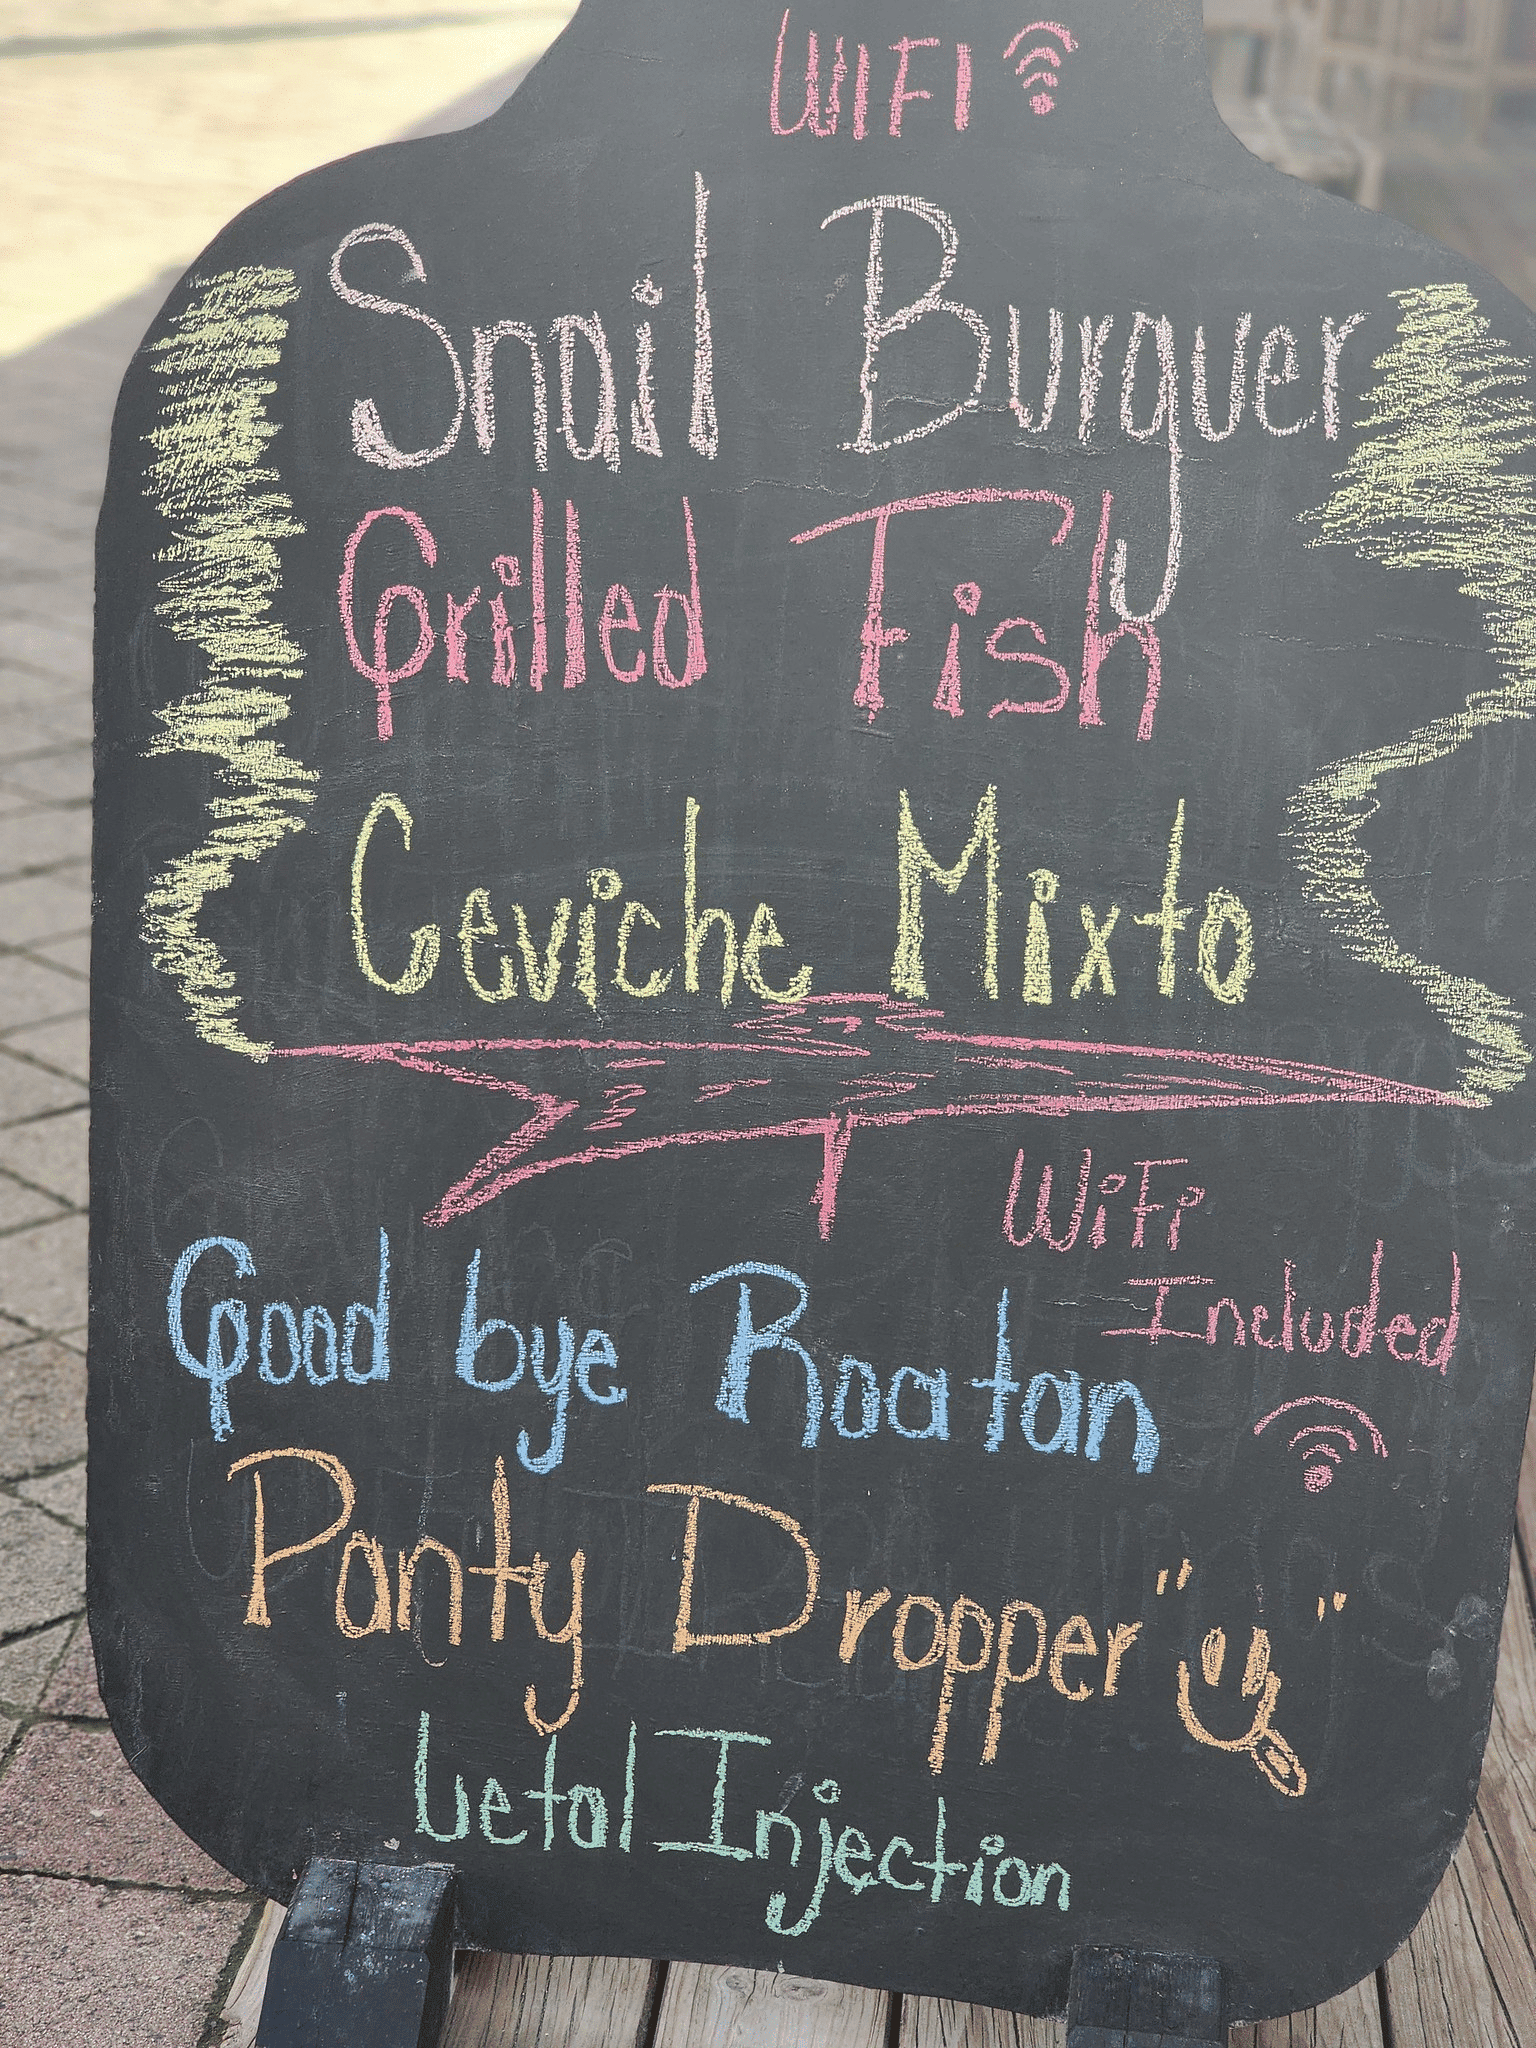 WIFI
Snail Burguer
Grilled Fish
Ceviche Mixto
WiFi
Included
Good bye Roatan
Panty Dropper " "
Letal Injection